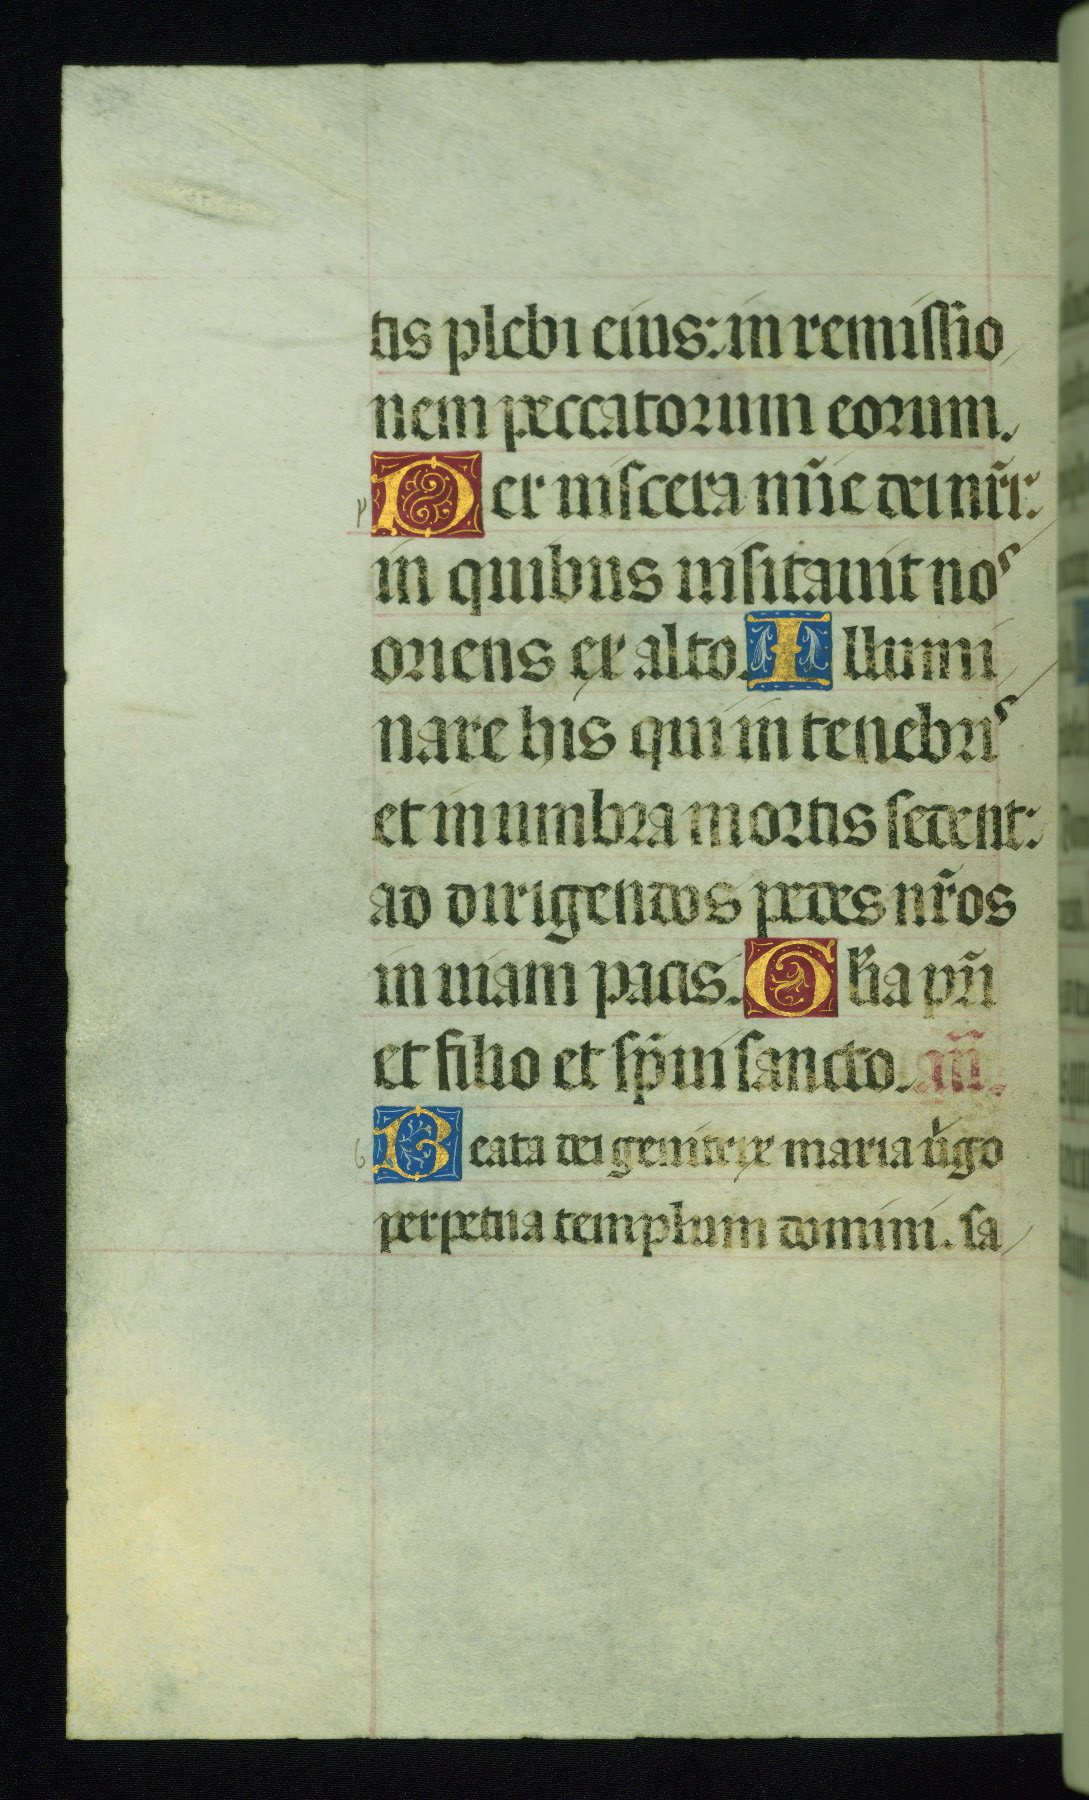 tis plebi eius: in remissio
nem peccatorum eorum.
Per uiscera mīe dei nr̄i:
in quibus uisitauit nos
oriens ex alto. Illumi
nare his qui in tenebris
et in umbra mortis sedent:
ad dirigendos pedes nr̄os
in uiam pacis. Glīa pr̄i
et filio et sp̄ui sancto. añ.
Beata dei genitrix maria ūgo
perpetua templum domini. sa